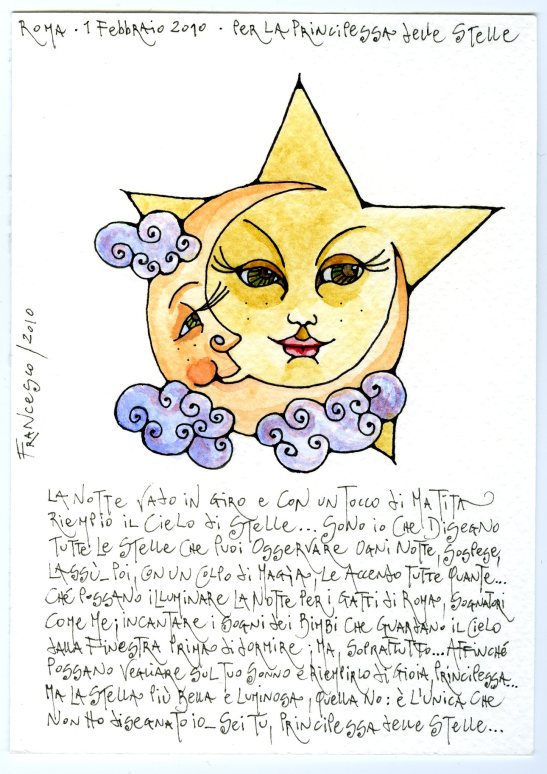 Roma · 1 Febbraio 2010 · Per la Principessa delle Stelle
Francesco / 2010
La notte vado in giro e con un tocco di matita
riempio il cielo di stelle... Sono io che disegno
tutte le stelle che puoi osservare ogni notte, sospese,
lassù_ Poi, con un colpo di magia, le accendo tutte quante...
ché possano illuminare la notte per i gatti di Roma, sognatori
come me; incantare i sogni dei bimbi che guardano il cielo
dalla finestra prima di dormire; ma, soprattutto... affinché
possano vegliare sul tuo sonno e riempirlo di gioia, Principessa...
Ma la stella più bella e luminosa, quella no: è l'unica che
non ho disegnato io_ Sei tu, Principessa delle Stelle...